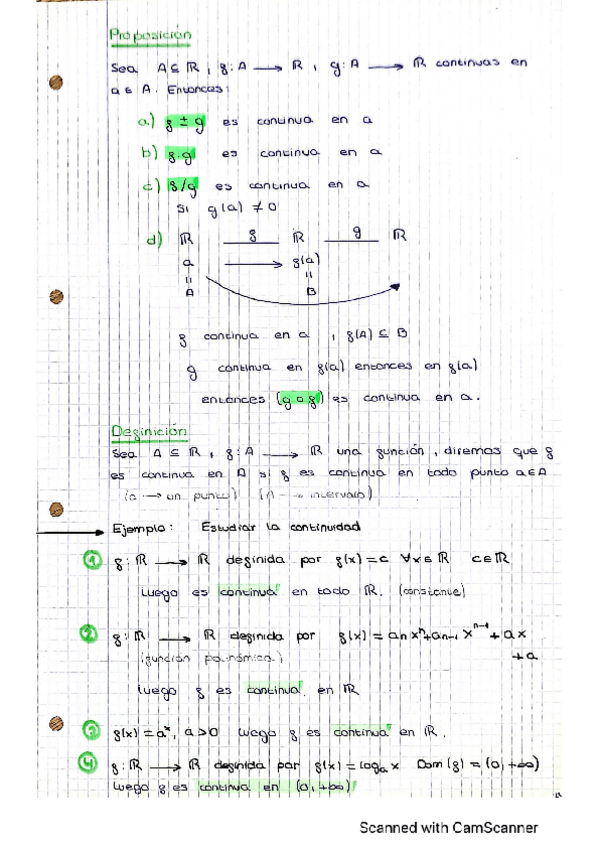 Proposición
Sea A ⊆ ℝ, f: A → ℝ, g: A → ℝ continuas en
a ∈ A. Entonces:
a) f ± g es continua en a
b) f·g es continua en a
c) f/g es continua en a
si g(a) ≠ 0
d) ℝ f ℝ g ℝ
a → f(a)
= =
A B
f continua en a, f(A) ⊆ B
g continua en f(a) entonces en f(a)
entonces (g o f) es continua en a.
Definición
Sea A ⊆ ℝ, f: A → ℝ una función, diremos que f
es continua en A si f es continua en todo punto a ∈ A
(a → un punto) (A → intervalo)
→ Ejemplo: Estudiar la continuidad
1 f: ℝ → ℝ definida por f(x) = c ∀x ∈ ℝ c ∈ ℝ
Luego es continua en todo ℝ. (constante)
2 f: ℝ → ℝ definida por f(x) = an xⁿ + an-1 xⁿ⁻¹ + ax
+a
(función polinómica)
luego f es continua en ℝ
3 f(x) = aˣ, a > 0 luego f es continua en ℝ.
4 f: ℝ → ℝ definida por f(x) = logₐ x Dom(f) = (0, +∞)
luego f es continua en (0, +∞)
Scanned with CamScanner